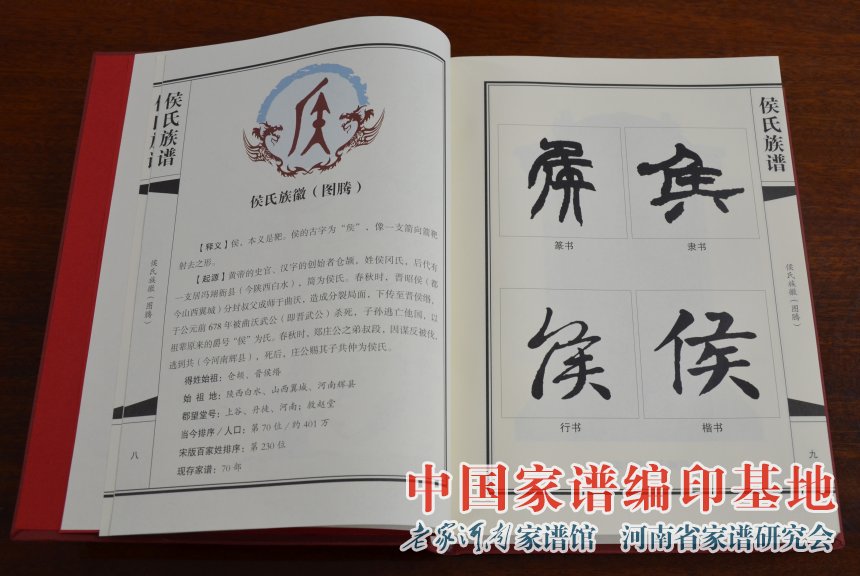 侯氏族谱
侯氏族徽（图腾）
八
侯氏族徽（图腾）
【释义】侯，本义是靶。侯的古字为“矦”，像一支箭向箭靶
射去之形。
【起源】黄帝的史官、汉字的创始者仓颉，姓侯冈氏，后代有
一支居冯翊衙县（今陕西白水），简为侯氏。春秋时，晋昭侯（都
今山西翼城）分封叔父成师于曲沃，造成分裂局面，下传至晋侯缗，
于公元前678年被曲沃武公（即晋武公）杀死，子孙逃亡他国，以
祖辈原来的爵号“侯”为氏。春秋时，郑庄公之弟叔段，因谋反被伐，
逃到共（今河南辉县），死后，庄公赐其子共仲为侯氏。
得姓始祖：仓颉、晋侯缗
始 祖 地：陕西白水、山西翼城、河南辉县
郡望堂号：上谷、丹徒、河南；救赵堂
当今排序／人口：第70位／约401万
宋版百家姓排序：第230位
现存家谱：70部
侯
篆书
侯
隶书
侯
行书
侯
楷书
侯氏族谱
侯氏族徽（图腾）
九
中国家谱编印基地
老家河南家谱馆 河南省家谱研究会